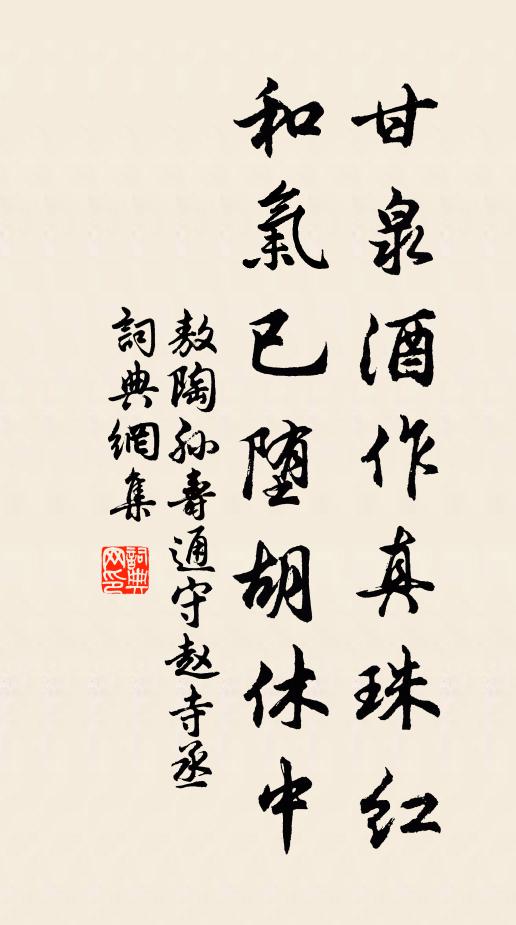 甘泉酒作真珠红
和氣已堕胡休中
敖陶孙壽通守赵寺丞
詞典網集
詞典網印